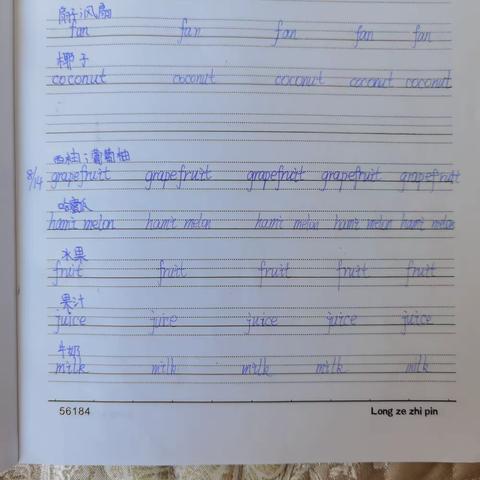 扇子;风扇
fan fan fan fan fan
椰子
coconut coconut coconut coconut coconut
西柚;葡萄柚
8/14 grapefruit grapefruit grapefruit grapefruit grapefruit
哈蜜瓜
hami melon hami melon hami melon hami melon hami melon
水果
fruit fruit fruit fruit fruit
果汁
juice juice juice juice juice
牛奶
milk milk milk milk milk
56184 Long ze zhi pin